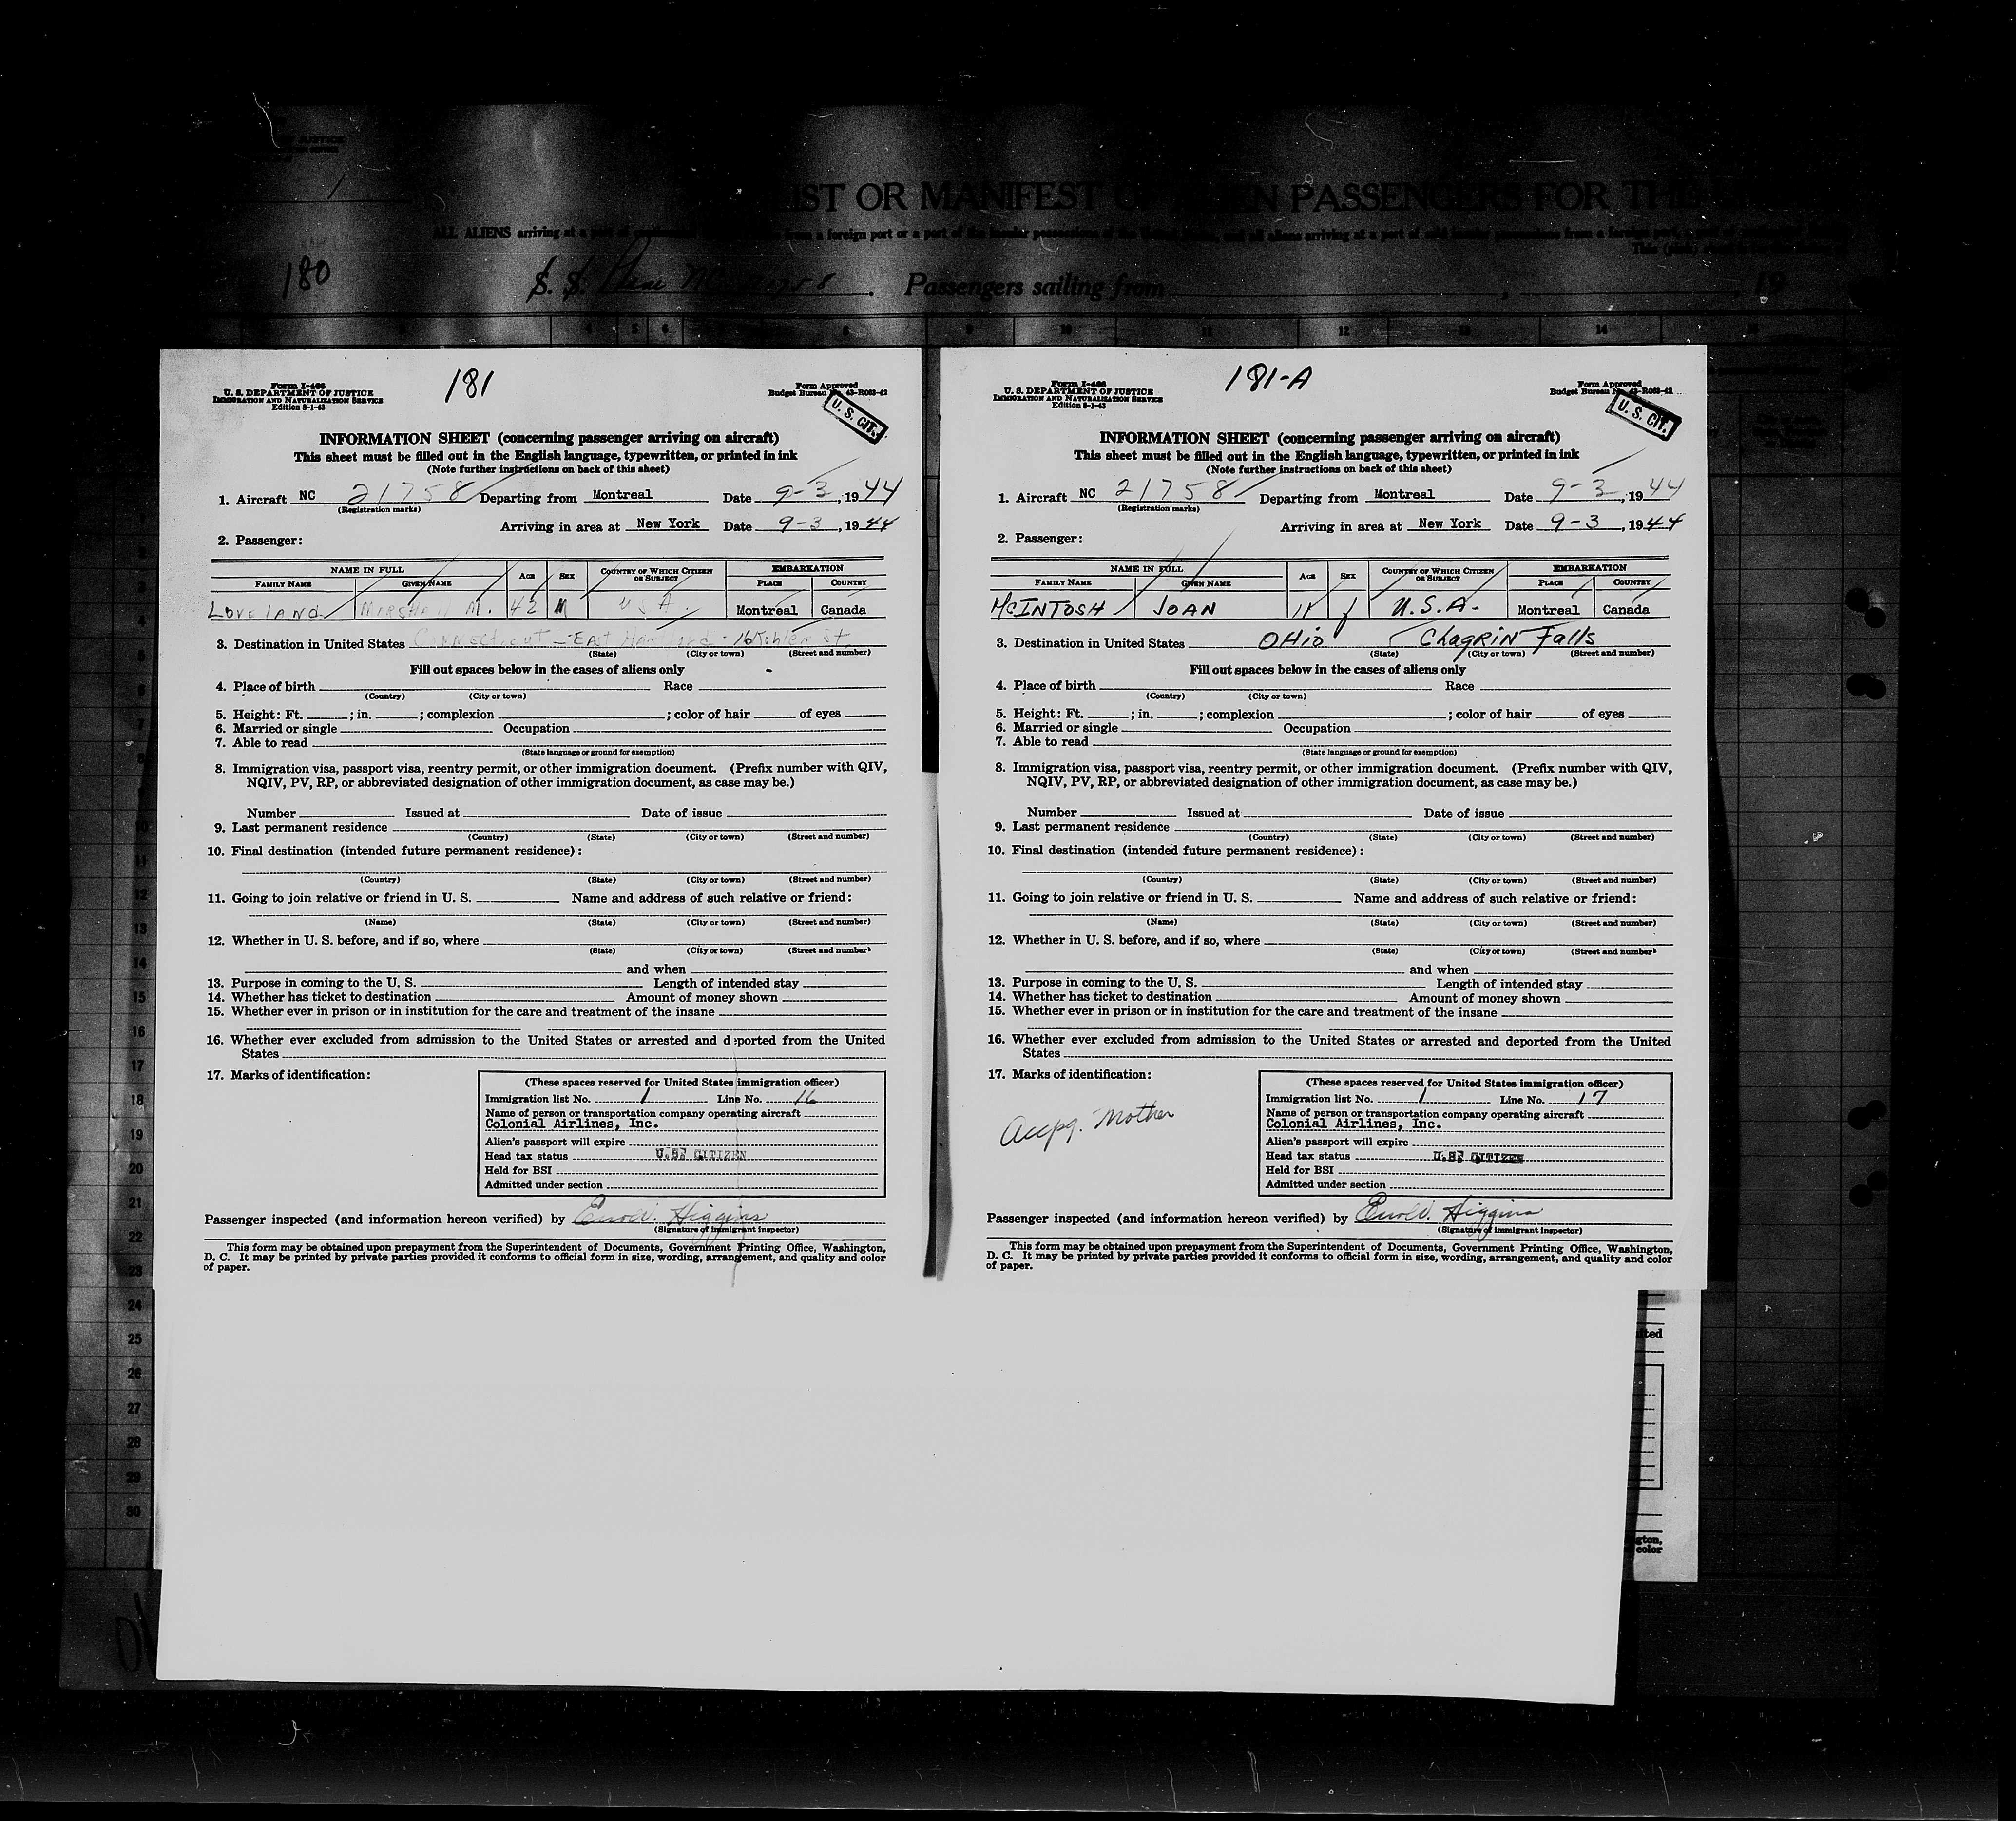 JUSTICE
LIST OR MANIFEST OF ALIEN PASSENGERS FOR THE
ALL ALIENS arriving at a port of from a foreign port or a port of the insular possessions of the United States, and all aliens arriving at a port of said insular possessions from a foreign port, a port of
This (
180 S. S. Passengers sailing from , 19
3 4 5 6 7 8 9 10 11 12 13 14 15
181
Form I-466
U. S. DEPARTMENT OF JUSTICE
IMMIGRATION AND NATURALIZATION SERVICE
Edition 8-1-43
Form Approved
Budget Bureau No. 43-R063-42
U. S. CIT.
INFORMATION SHEET (concerning passenger arriving on aircraft)
This sheet must be filled out in the English language, typewritten, or printed in ink
(Note further instructions on back of this sheet)
1. Aircraft NC 21758 Departing from Montreal Date 9-3, 1944
(Registration marks)
Arriving in area at New York Date 9-3, 1944
2. Passenger:
NAME IN FULL AGE SEX COUNTRY OF WHICH CITIZEN OR SUBJECT EMBARKATION
FAMILY NAME GIVEN NAME PLACE COUNTRY
LOVELAND MARSHALL M. 42 M USA. Montreal Canada
3. Destination in United States CONNECTICUT - EAST HARTFORD - 16 Kohler St.
(State) (City or town) (Street and number)
Fill out spaces below in the cases of aliens only
4. Place of birth Race
(Country) (City or town)
5. Height: Ft. ; in. ; complexion ; color of hair of eyes
6. Married or single Occupation
7. Able to read
(State language or ground for exemption)
8. Immigration visa, passport visa, reentry permit, or other immigration document. (Prefix number with QIV,
NQIV, PV, RP, or abbreviated designation of other immigration document, as case may be.)
Number Issued at Date of issue
9. Last permanent residence
(Country) (State) (City or town) (Street and number)
10. Final destination (intended future permanent residence):
(Country) (State) (City or town) (Street and number)
11. Going to join relative or friend in U. S. Name and address of such relative or friend:
(Name) (State) (City or town) (Street and number)
12. Whether in U. S. before, and if so, where
(State) (City or town) (Street and number)
and when
13. Purpose in coming to the U. S. Length of intended stay
14. Whether has ticket to destination Amount of money shown
15. Whether ever in prison or in institution for the care and treatment of the insane
16. Whether ever excluded from admission to the United States or arrested and deported from the United
States
17. Marks of identification:
(These spaces reserved for United States immigration officer)
Immigration list No. 1 Line No. 16
Name of person or transportation company operating aircraft
Colonial Airlines, Inc.
Alien's passport will expire
Head tax status U.S. CITIZEN
Held for BSI
Admitted under section
Passenger inspected (and information hereon verified) by Higgins
(Signature of immigrant inspector)
This form may be obtained upon prepayment from the Superintendent of Documents, Government Printing Office, Washington,
D. C. It may be printed by private parties provided it conforms to official form in size, wording, arrangement, and quality and color
of paper.
181-A
Form I-466
U. S. DEPARTMENT OF JUSTICE
IMMIGRATION AND NATURALIZATION SERVICE
Edition 8-1-43
Form Approved
Budget Bureau No. 43-R063-42
U. S. CIT.
INFORMATION SHEET (concerning passenger arriving on aircraft)
This sheet must be filled out in the English language, typewritten, or printed in ink
(Note further instructions on back of this sheet)
1. Aircraft NC 21758 Departing from Montreal Date 9-3, 1944
(Registration marks)
Arriving in area at New York Date 9-3, 1944
2. Passenger:
NAME IN FULL AGE SEX COUNTRY OF WHICH CITIZEN OR SUBJECT EMBARKATION
FAMILY NAME GIVEN NAME PLACE COUNTRY
McINTOSH JOAN 11 f U.S.A. Montreal Canada
3. Destination in United States OHio Chagrin Falls
(State) (City or town) (Street and number)
Fill out spaces below in the cases of aliens only
4. Place of birth Race
(Country) (City or town)
5. Height: Ft. ; in. ; complexion ; color of hair of eyes
6. Married or single Occupation
7. Able to read
(State language or ground for exemption)
8. Immigration visa, passport visa, reentry permit, or other immigration document. (Prefix number with QIV,
NQIV, PV, RP, or abbreviated designation of other immigration document, as case may be.)
Number Issued at Date of issue
9. Last permanent residence
(Country) (State) (City or town) (Street and number)
10. Final destination (intended future permanent residence):
(Country) (State) (City or town) (Street and number)
11. Going to join relative or friend in U. S. Name and address of such relative or friend:
(Name) (State) (City or town) (Street and number)
12. Whether in U. S. before, and if so, where
(State) (City or town) (Street and number)
and when
13. Purpose in coming to the U. S. Length of intended stay
14. Whether has ticket to destination Amount of money shown
15. Whether ever in prison or in institution for the care and treatment of the insane
16. Whether ever excluded from admission to the United States or arrested and deported from the United
States
17. Marks of identification:
Accpg. Mother
(These spaces reserved for United States immigration officer)
Immigration list No. 1 Line No. 17
Name of person or transportation company operating aircraft
Colonial Airlines, Inc.
Alien's passport will expire
Head tax status U.S. CITIZEN
Held for BSI
Admitted under section
Passenger inspected (and information hereon verified) by Higgins
(Signature of immigrant inspector)
This form may be obtained upon prepayment from the Superintendent of Documents, Government Printing Office, Washington,
D. C. It may be printed by private parties provided it conforms to official form in size, wording, arrangement, and quality and color
of paper.
1
2
3
4
5
6
7
8
9
10
11
12
13
14
15
16
17
18
19
20
21
22
23
24
25
26
27
28
29
30
gton,
color